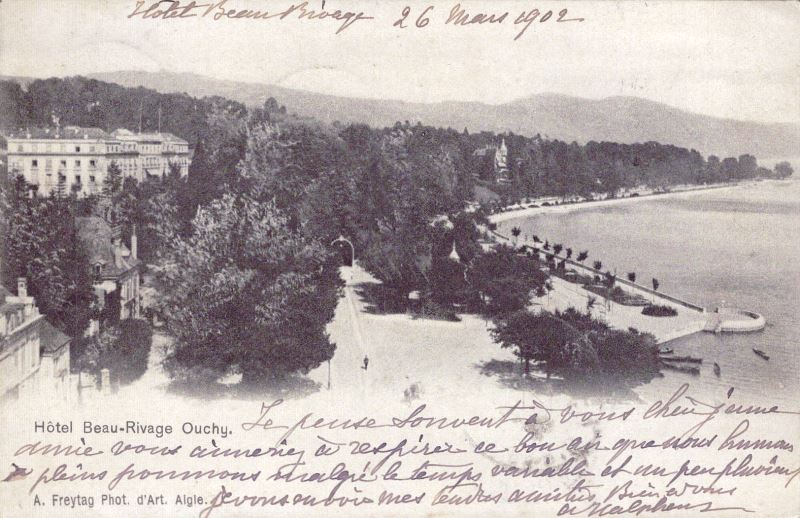 Hôtel Beau Rivage 26 Mars 1902
Hôtel Beau-Rivage Ouchy.
Je pense souvent à vous chère jeune
amie vous aimeriez à respirer ce bon air que nous humons
à pleins poumons malgré le temps variable et un peu pluvieux
A. Freytag Phot. d'Art. Aigle.
je vous envoie mes tendres amitiés Bien à vous